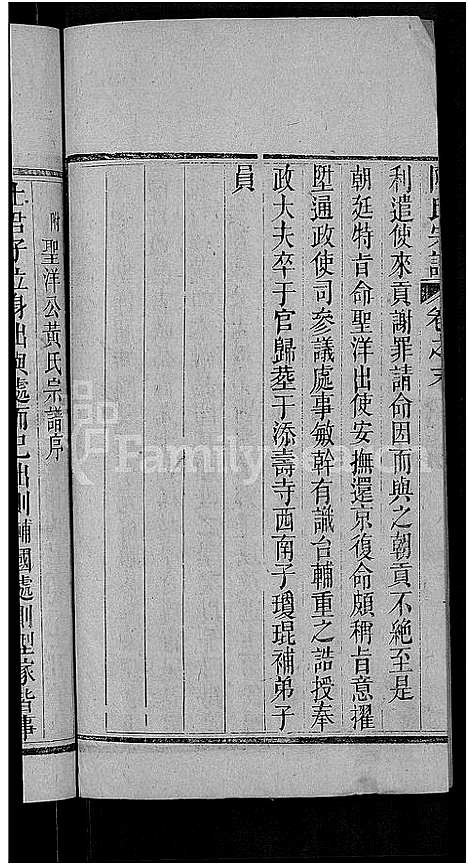 陳氏宗譜
卷之末
利遣使來貢謝罪請命因而與之朝貢不絕至是
朝廷特旨命聖洋出使安撫還京復命頗稱旨意擢
陞通政使司參議處事敏幹有識台輔重之誥授奉
政大夫卒于官歸塟于添壽寺西南子瓊琨補弟子
員
附聖洋公黃氏宗譜序
士君子立身出與處而已出則輔國處則型家皆事
FamilySearch